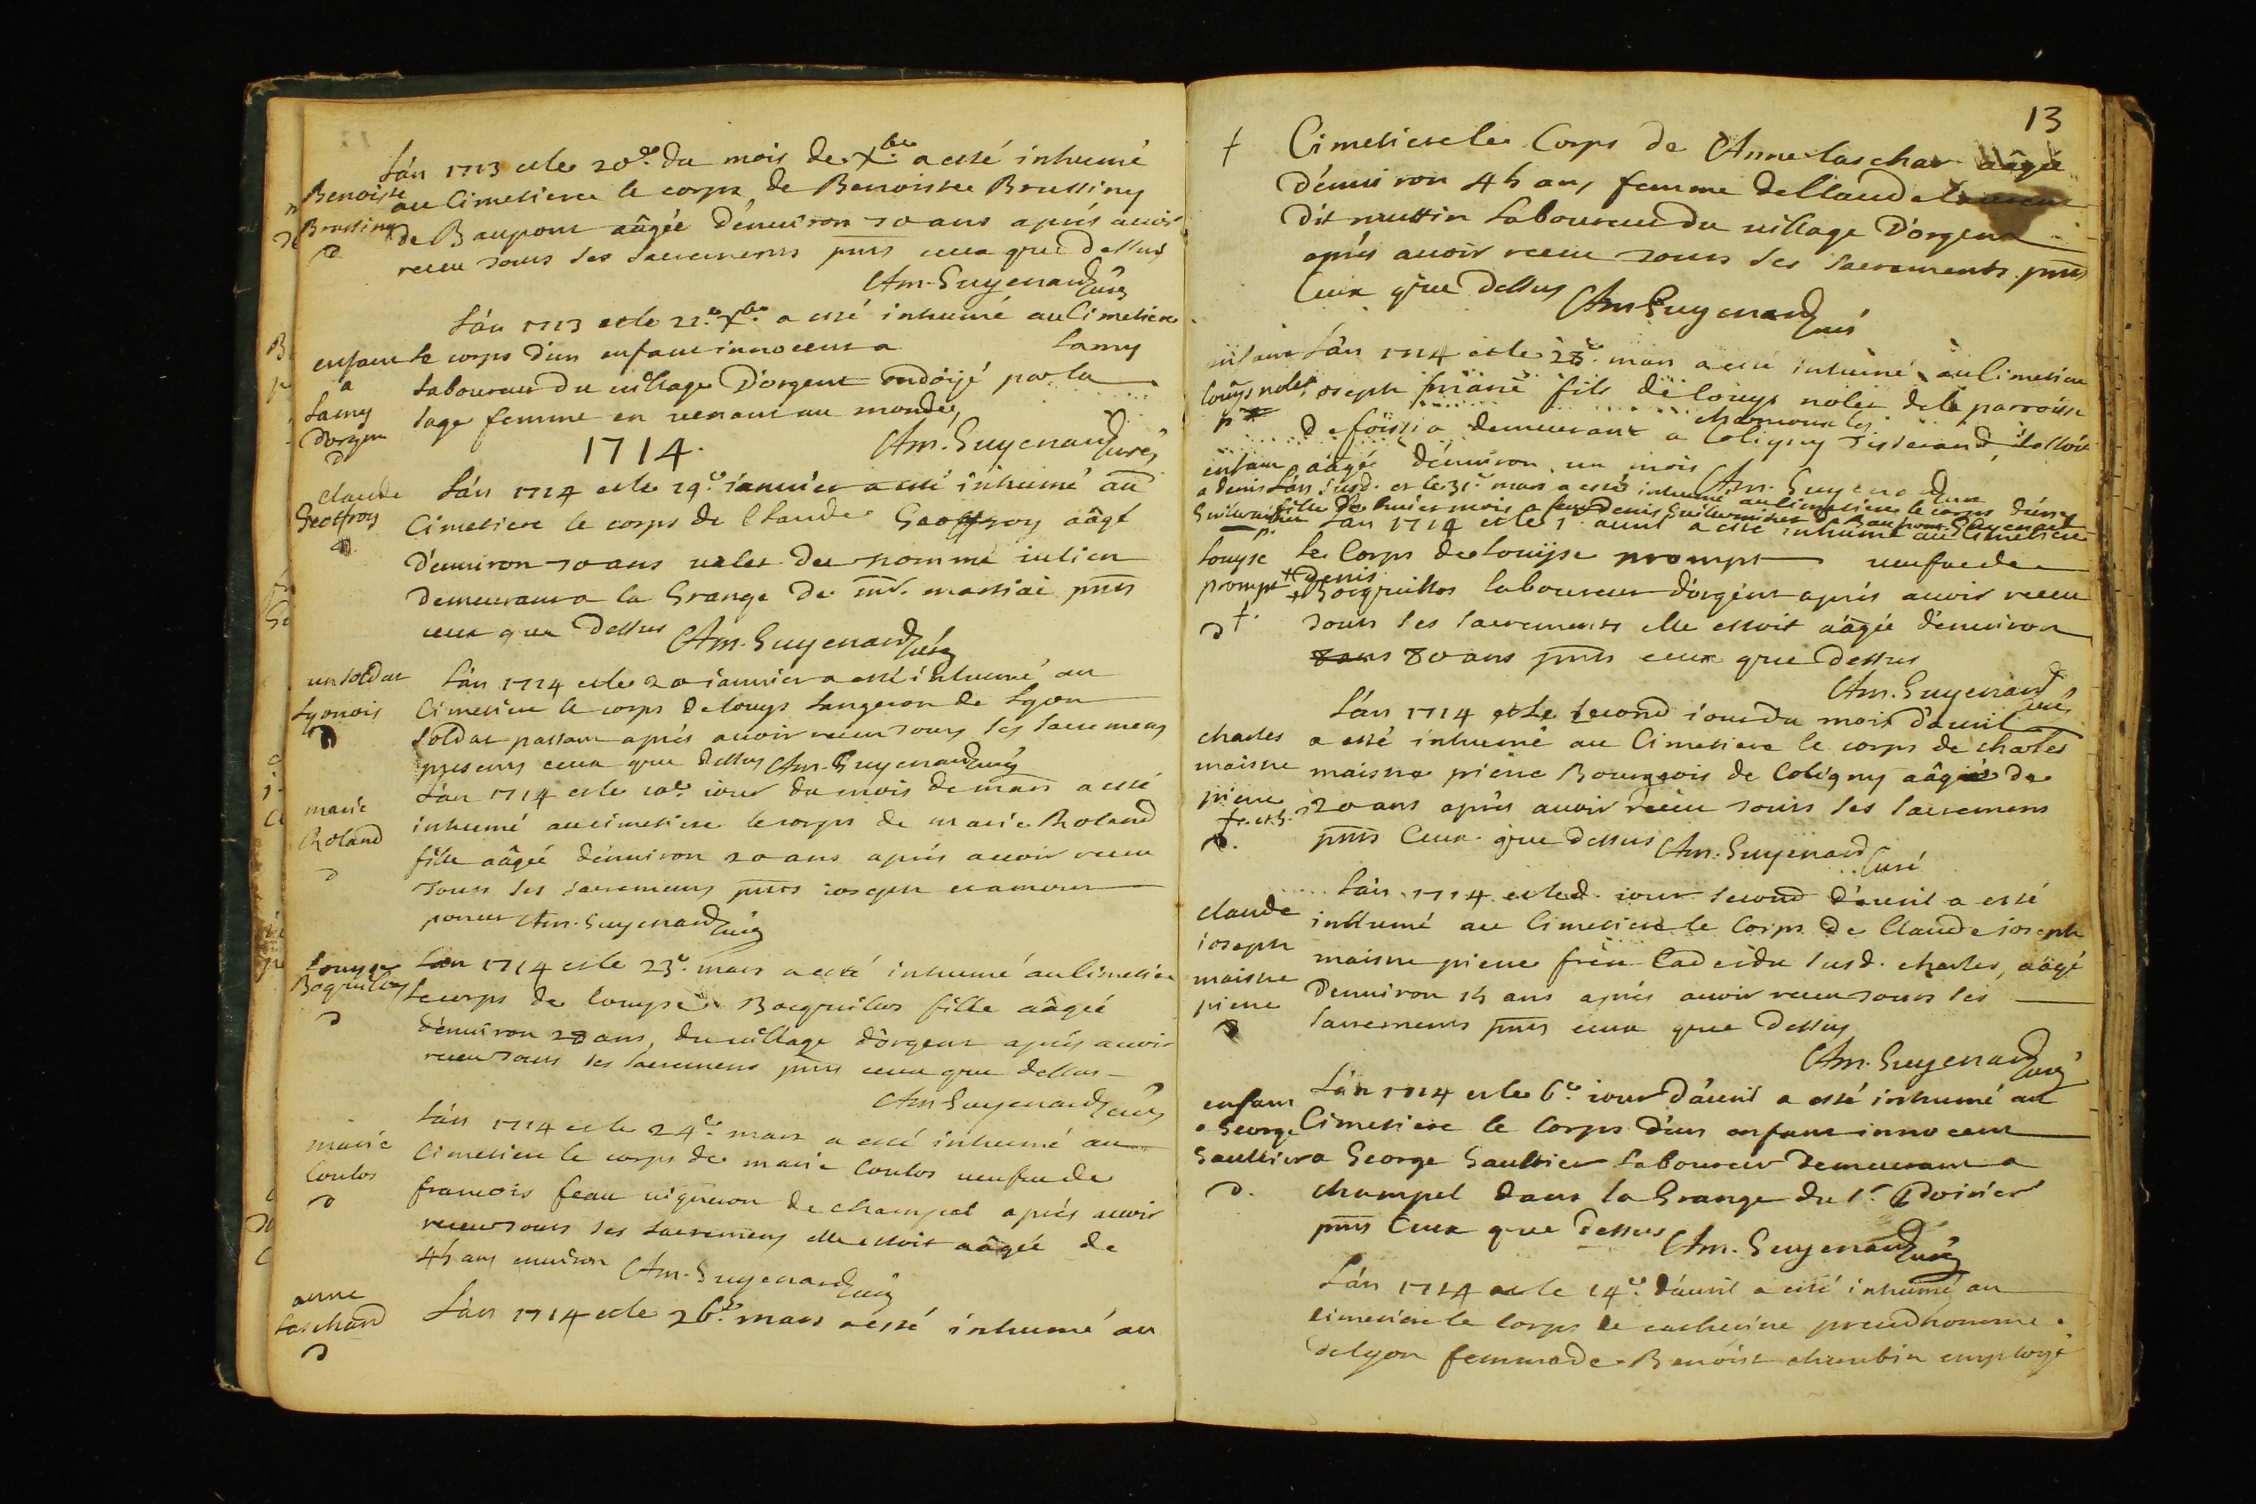 L'an 1713 et le 20e. du mois de Xbre a esté inhumé
Benoiste au Cimetiere le corps de Benoiste Brussiny
Brussiny de Baupont aâgée d'enuiron 70 ans apres auoir
receu tous les sacremens pnts ceux que dessus
Am. Guyenard Curé
L'an 1713 et le 21e. Xbre a esté inhumé au Cimetiere
enfant le corps d'un enfant innocent a Lamy
a laboureur du village D'orgent ondoyé par la
Lamy sage femme en venant au monde
Dorgen
1714. Am. Guyenard Curé
Claude L'an 1714 et le 19e. ianuier a esté inhumé au
Geoffroy Cimetiere le corps de Claude Geoffroy aâgé
d'enuiron 70 ans valet du nommé iulien
demeurant a la Grange de mr. martiai pnts
ceux que dessus Am. Guyenard Curé
un soldat L'an 1714 et le 20 ianuier a esté inhumé au
Lyonois Cimetiere le corps de Louys Langeron de Lyon
soldat passant aprés auoir receu tous les sacremens
presens ceux que dessus Am. Guyenard Curé
L'an 1714 et le 10e. iour du mois de mars a esté
marie inhumé au cimetiere le corps de marie Roland
Roland fille aâgée d'enuiron 20 ans aprés auoir receu
tous les sacremens pnts ioseph
Am. Guyenard Curé
Louyse L'an 1714 et le 23e. mars a esté inhumé au Cimetiere
Boquillos le corps de Louyse Bocquillos fille aâgée
d'enuiron 28 ans, du village d'orgent aprés auoir
receu tous les sacremens pnts ceux que dessus
Am Guyenard Curé
L'an 1714 et le 24e. mars a esté inhumé au
marie Cimetiere le corps de marie Coulos veufue de
Coulos francois feau vigneron de champel aprés auoir
receu tous les sacremens elle estoit aâgée de
45 ans enuiron Am. Guyenard Curé
anne
Laschard L'an 1714 et le 26e. mars a esté inhumé au
13
Cimetiere le Corps de Anne Laschar aâgée
d'enuiron 45 ans femme de Claude
dit muttin Laboureur du village D'orgent
aprés auoir receu tous les sacrements pnts
Ceux que dessus Am Guyenard Curé
enfant L'an 1714 et le 28e. mars a esté inhumé au Cimetiere
Louys nolet ioseph marie fils de Louys nolet de la parroisse
de foissia demeurant a Coligny Tisserand, il estoit
aâgé d'enuiron un mois Am. Guyenard Curé
enfant
a denis L'an susd. et le 31e. mars a esté inhumé au Cimetiere le corps d'une
fille de huict mois a feu denis Guillermier de Baupont Guyenard
L'an 1714 et le 1er auril a esté inhumé au Cimetiere
Louyse le Corps de Louyse prompt veufue de
prompt denis Bocquillos laboureur d'orgent aprés auoir receu
tous les sacrements elle estoit aâgée d'enuiron
80 ans pnts ceux que dessus
Am. Guyenard Curé
L'an 1714 et le second iour du mois d'auril
charles a esté inhumé au Cimetiere le corps de charles
maistre maistre pierre Bourgeois de Coligny aâgé de
pierre 20 ans aprés auoir receu tous les sacremens
pnts Ceux que dessus Am. Guyenard Curé
L'an 1714 et led. iour second d'auril a esté
claude inhumé au Cimetiere le Corps de Claude ioseph
ioseph maistre pierre frere Cadet du susd. charles, aâgé
maistre d'enuiron 15 ans aprés auoir receu tous les
pierre sacremens pnts ceux que dessus
Am. Guyenard Curé
enfant L'an 1714 et le 6e. iour d'auril a esté inhumé au
a George Cimetiere le Corps d'un enfant innocent
Gaultier a George Gaultier Laboureur demeurant a
champel dans la Grange du sr. Poirier
pnts Ceux que dessus Am. Guyenard Curé
L'an 1714 et le 14e. d'auril a esté inhumé au
cimetiere le corps de catherine preudhomme
de Lyon femme de Benoist cherubin employé